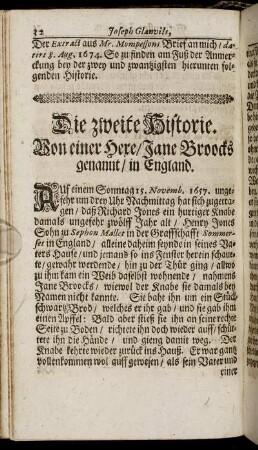 32 Joseph Glanvils,
Der Extract aus Mr. Mompessons Brief an mich / da-
tirt 8. Aug. 1674. So zu finden am Fuß der Anmer-
ckung bey der zwey und zwantzigsten hierunten fol-
genden Historie.
Die zweite Historie.
Von einer Hexe / Jane Broocks
genannt / in England.
AUf einem Sonntag 15. Novemb. 1657. unge-
fehr um drey Uhr Nachmittag hat sich zugetra-
gen / daß Richard Jones ein hurtiger Knabe
damals ungefehr zwölff Jahr alt / Henry Jones
Sohn zu Sephon Mallet in der Graffschafft Sommer-
set in England / alleine daheim seynde in seines Va-
ters Hause / und jemand so ins Fenster herein schaue-
te / gewahr werdende / hin zu der Thür ging / allwo
zu ihm kam ein Weib daselbst wohnende / nahmens
Jane Broocks / wiewol der Knabe sie damals bey
Namen nicht kannte. Sie bahte ihn um ein Stück
schwartz Brod / welches er ihr gab / und sie gab ihm
einen Apffel: Bald aber stieß sie ihn an seine rechte
Seite zu Boden / richtete ihn doch wieder auff / schüt-
tete ihn die Hände / und gieng damit weg. Der
Knabe kehrte wieder zurück ins Hauß. Er war gantz
vollenkommen wol auff gewesen / als sein Vater und
einer